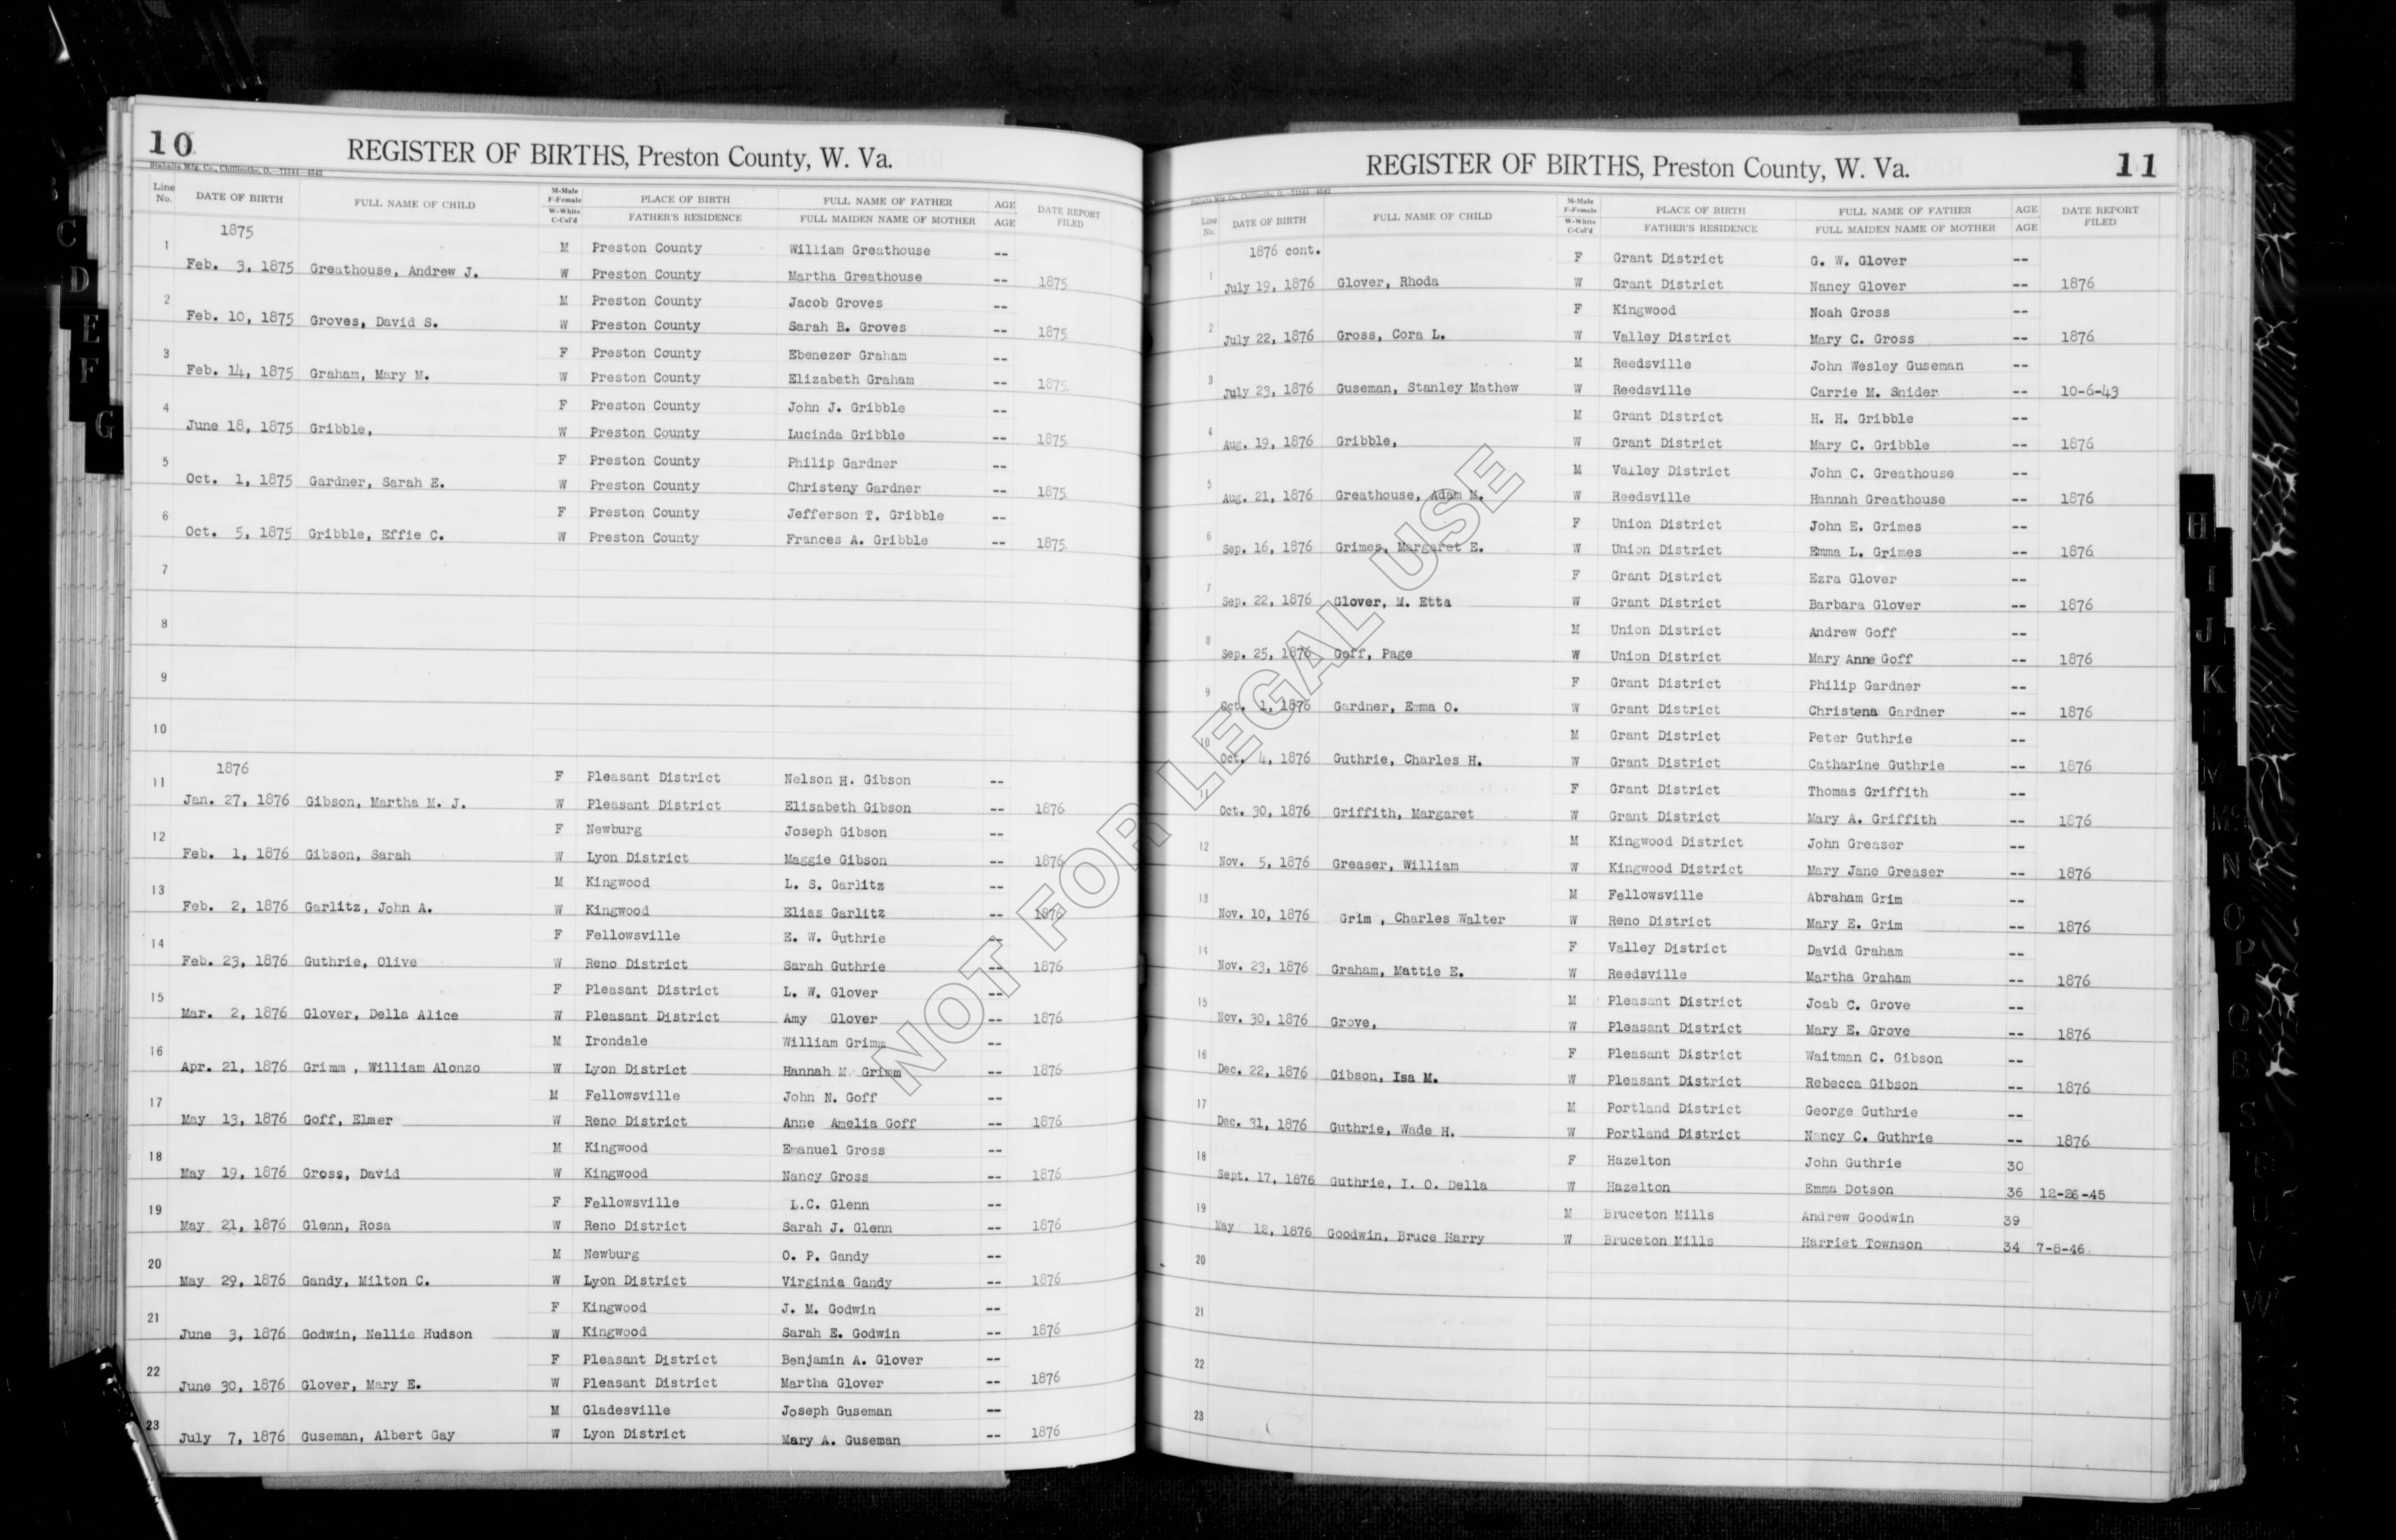 10
REGISTER OF BIRTHS, Preston County, W. Va.
Line No. DATE OF BIRTH FULL NAME OF CHILD M-Male F-Female W-White C-Col'd PLACE OF BIRTH FATHER'S RESIDENCE FULL NAME OF FATHER FULL MAIDEN NAME OF MOTHER AGE AGE DATE REPORT FILED
1875
1 M Preston County William Greathouse --
Feb. 3, 1875 Greathouse, Andrew J. W Preston County Martha Greathouse -- 1875
2 M Preston County Jacob Groves --
Feb. 10, 1875 Groves, David S. W Preston County Sarah B. Groves -- 1875
3 F Preston County Ebenezer Graham --
Feb. 14, 1875 Graham, Mary M. W Preston County Elizabeth Graham -- 1875
4 F Preston County John J. Gribble --
June 18, 1875 Gribble, W Preston County Lucinda Gribble -- 1875
5 F Preston County Philip Gardner --
Oct. 1, 1875 Gardner, Sarah E. W Preston County Christeny Gardner -- 1875
6 F Preston County Jefferson T. Gribble --
Oct. 5, 1875 Gribble, Effie C. W Preston County Frances A. Gribble -- 1875
7
8
9
10
1876
11 F Pleasant District Nelson H. Gibson --
Jan. 27, 1876 Gibson, Martha M. J. W Pleasant District Elisabeth Gibson -- 1876
12 F Newburg Joseph Gibson --
Feb. 1, 1876 Gibson, Sarah W Lyon District Maggie Gibson -- 1876
13 M Kingwood L. S. Garlitz --
Feb. 2, 1876 Garlitz, John A. W Kingwood Elias Garlitz -- 1876
14 F Fellowsville E. W. Guthrie --
Feb. 23, 1876 Guthrie, Olive W Reno District Sarah Guthrie -- 1876
15 F Pleasant District L. W. Glover --
Mar. 2, 1876 Glover, Della Alice W Pleasant District Amy Glover -- 1876
16 M Irondale William Grimm --
Apr. 21, 1876 Grimm , William Alonzo W Lyon District Hannah M Grimm -- 1876
17 M Fellowsville John N. Goff --
May 13, 1876 Goff, Elmer W Reno District Anne Amelia Goff -- 1876
18 M Kingwood Emanuel Gross --
May 19, 1876 Gross, David W Kingwood Nancy Gross -- 1876
19 F Fellowsville L.C. Glenn --
May 21, 1876 Glenn, Rosa W Reno District Sarah J. Glenn -- 1876
20 M Newburg O. P. Gandy --
May 29, 1876 Gandy, Milton C. W Lyon District Virginia Gandy -- 1876
21 F Kingwood J. M. Godwin --
June 3, 1876 Godwin, Nellie Hudson W Kingwood Sarah E. Godwin -- 1876
22 F Pleasant District Benjamin A. Glover --
June 30, 1876 Glover, Mary E. W Pleasant District Martha Glover -- 1876
23 M Gladesville Joseph Guseman --
July 7, 1876 Guseman, Albert Gay W Lyon District Mary A. Guseman -- 1876
C
D
E
F
G
REGISTER OF BIRTHS, Preston County, W. Va.
11
Line No. DATE OF BIRTH FULL NAME OF CHILD M-Male F-Female W-White C-Col'd PLACE OF BIRTH FATHER'S RESIDENCE FULL NAME OF FATHER FULL MAIDEN NAME OF MOTHER AGE AGE DATE REPORT FILED
1876 cont.
1 F Grant District G. W. Glover --
July 19, 1876 Glover, Rhoda W Grant District Nancy Glover -- 1876
2 F Kingwood Noah Gross --
July 22, 1876 Gross, Cora L. W Valley District Mary C. Gross -- 1876
3 M Reedsville John Wesley Guseman --
July 23, 1876 Guseman, Stanley Mathew W Reedsville Carrie M. Snider -- 10-6-43
4 M Grant District H. H. Gribble --
Aug. 19, 1876 Gribble, W Grant District Mary C. Gribble -- 1876
5 M Valley District John C. Greathouse --
Aug. 21, 1876 Greathouse, Adam M. W Reedsville Hannah Greathouse -- 1876
6 F Union District John E. Grimes --
Sep. 16, 1876 Grimes, Margaret E. W Union District Emma L. Grimes -- 1876
7 F Grant District Ezra Glover --
Sep. 22, 1876 Glover, M. Etta W Grant District Barbara Glover -- 1876
8 M Union District Andrew Goff --
Sep. 25, 1876 Goff, Page W Union District Mary Anne Goff -- 1876
9 F Grant District Philip Gardner --
Oct. 1, 1876 Gardner, Emma O. W Grant District Christena Gardner -- 1876
10 M Grant District Peter Guthrie --
Oct. 4, 1876 Guthrie, Charles H. W Grant District Catharine Guthrie -- 1876
11 F Grant District Thomas Griffith --
Oct. 30, 1876 Griffith, Margaret W Grant District Mary A. Griffith -- 1876
12 M Kingwood District John Greaser --
Nov. 5, 1876 Greaser, William W Kingwood District Mary Jane Greaser -- 1876
13 M Fellowsville Abraham Grim --
Nov. 10, 1876 Grim , Charles Walter W Reno District Mary E. Grim -- 1876
14 F Valley District David Graham --
Nov. 23, 1876 Graham, Mattie E. W Reedsville Martha Graham -- 1876
15 M Pleasant District Joab C. Grove --
Nov. 30, 1876 Grove, W Pleasant District Mary E. Grove -- 1876
16 F Pleasant District Waitman C. Gibson --
Dec. 22, 1876 Gibson, Isa M. W Pleasant District Rebecca Gibson -- 1876
17 M Portland District George Guthrie --
Dec. 31, 1876 Guthrie, Wade H. W Portland District Nancy C. Guthrie -- 1876
18 F Hazelton John Guthrie 30
Sept. 17, 1876 Guthrie, I. O. Della W Hazelton Emma Dotson 36 12-26-45
19 M Bruceton Mills Andrew Goodwin 39
May 12, 1876 Goodwin, Bruce Harry W Bruceton Mills Harriet Townson 34 7-8-46
20
21
22
23
H
I
J
K
L
M
Mc
N
O
P
Q
R
S
T
U
V
W
NOT FOR LEGAL USE